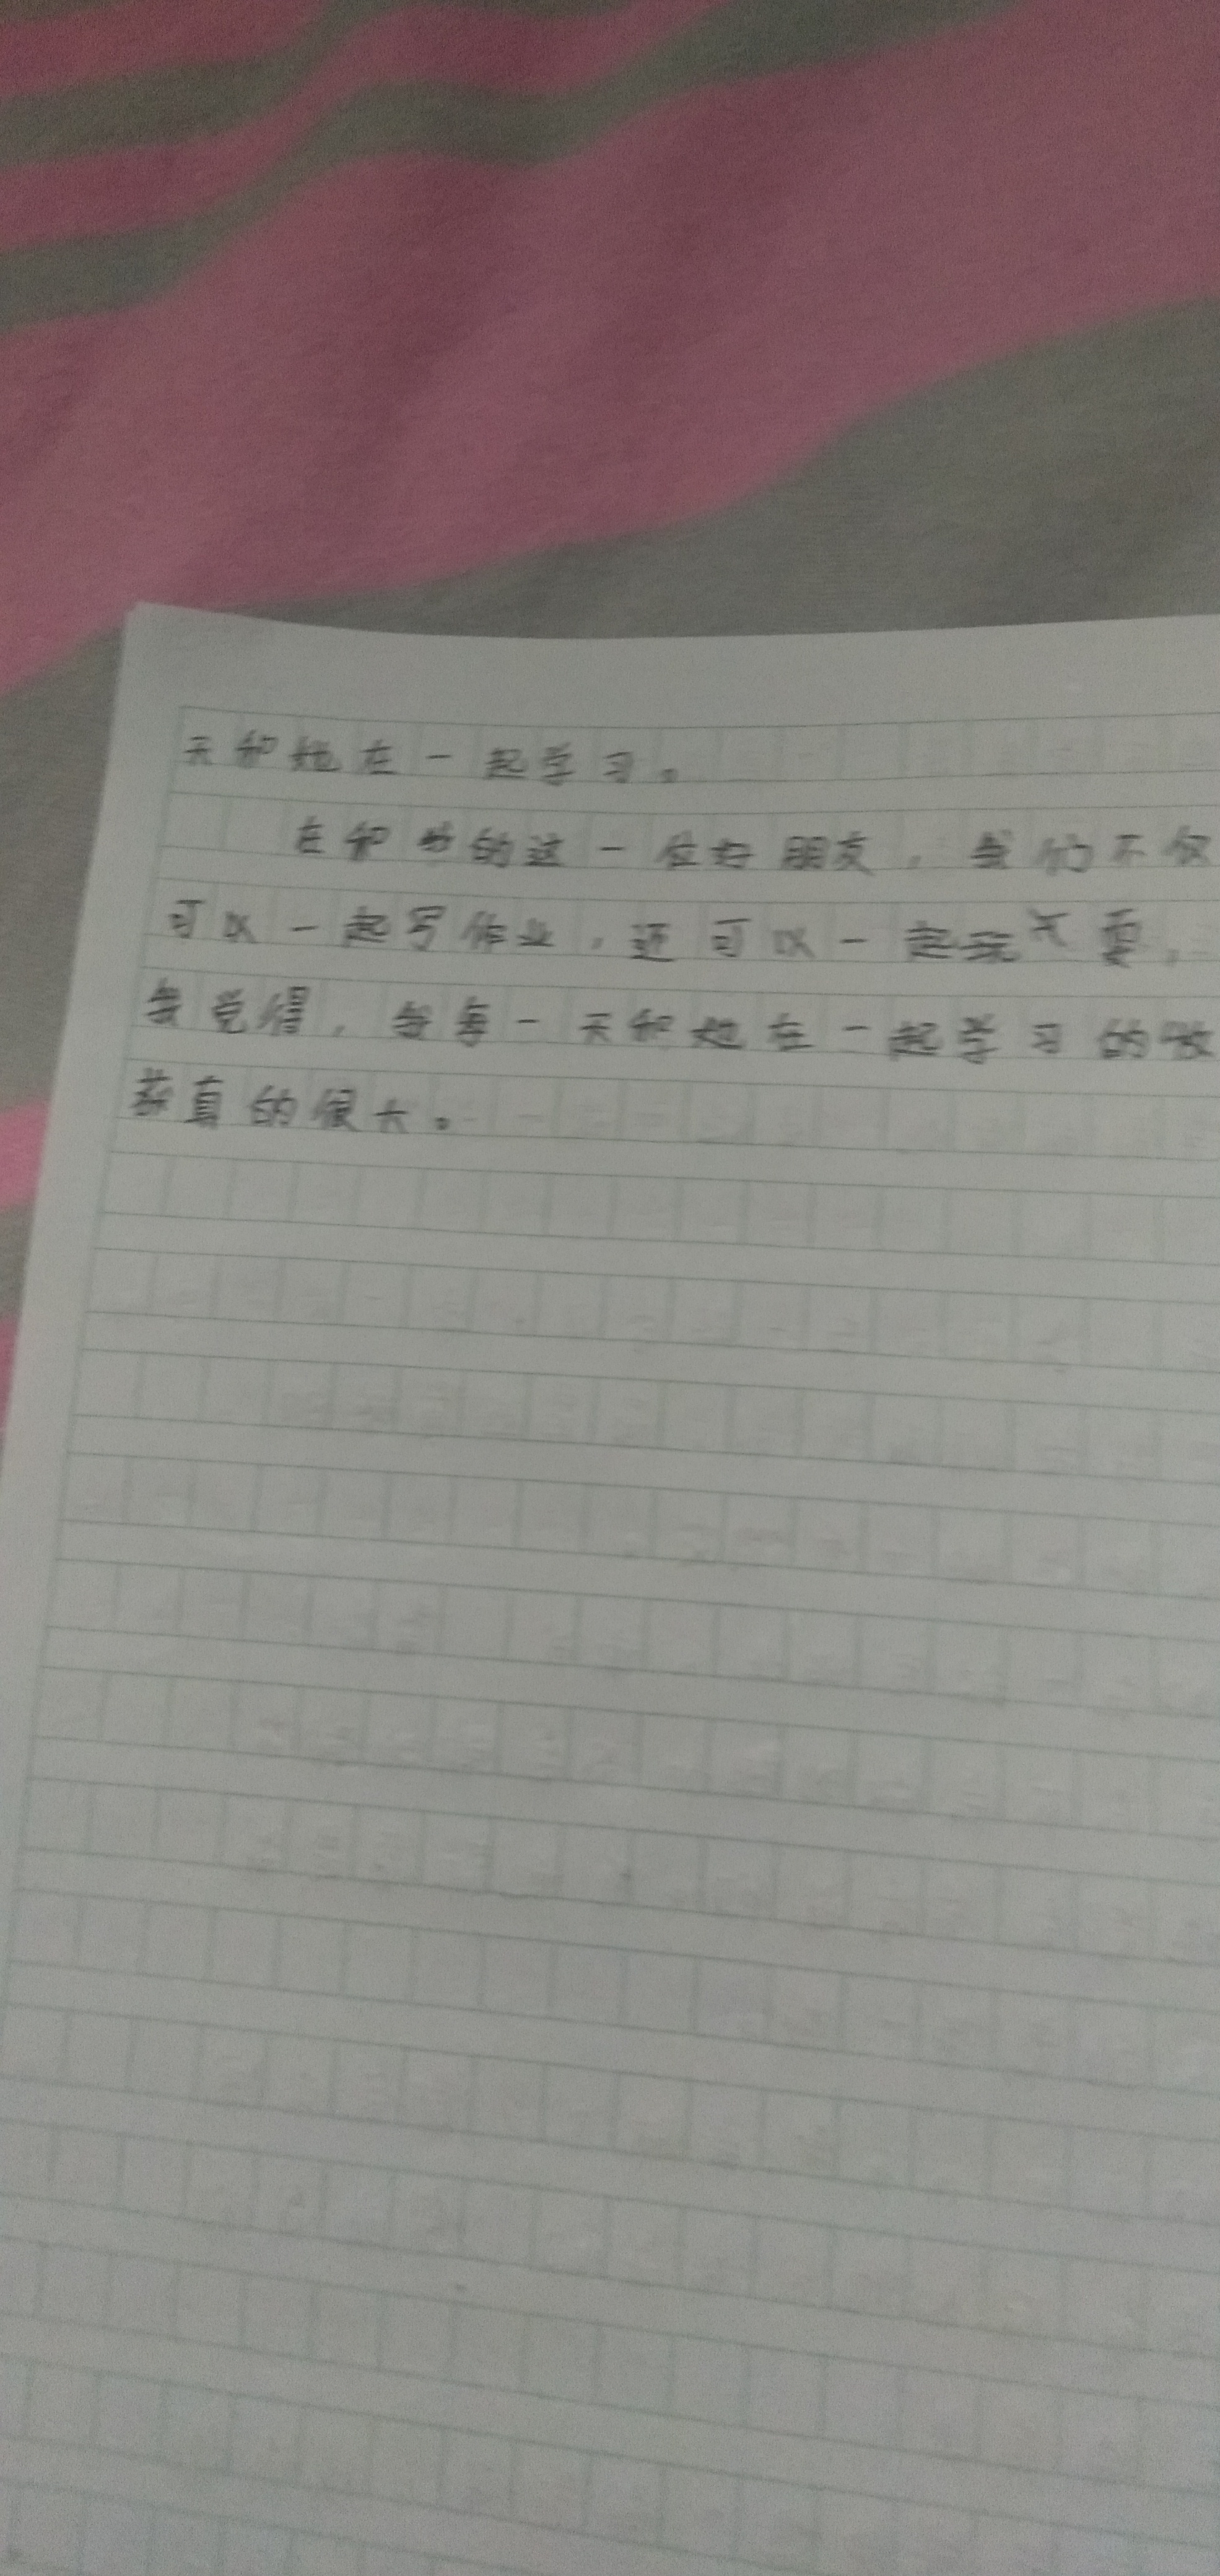 天和她在一起学习。
在和我的这一位好朋友，我们不仅
可以一起写作业，还可以一起玩耍，
我觉得，我每一天和她在一起学习的收
获真的很大。